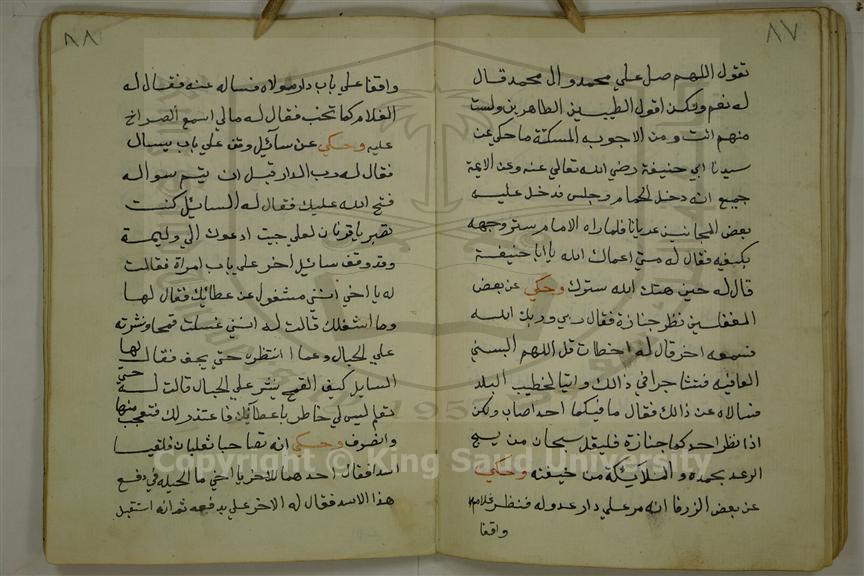 ٨٧
تقول اللهم صل علي محمد وال محمد قال
له نعم ولكن اقول الطيبين الطاهرين ولست
منهم انت ومن الاجوبه المسكتة ما حكي عن
سيدنا ابي حنيفة رضي الله تعالي عنه وعن الايمة
جميع انه دخل الحمام وجلس فدخل عليه
بعض المجانين عريانا فلما راه الامام ستر وجهه
بكفيه فقال له متي اعماك الله يا ابا حنيفة
قال له حين هتك الله سترك وحكي عن بعض
المغفلين نظر جنازة فقال ربي وربك الله
فسمعه اخر قال له اخطات قل اللهم البسني
العافيه فتشاجرا في ذالك واتيا لخطيب البلد
فسالاه عن ذالك فقال ما فيكما احد اصاب ولكن
اذا نظر احدكما جنازة فليقل سبحان من يسبح
الرعد بحمده والملائكة من خيفته وحكي
عن بعض الزرفا انه مر علي دار عدو له فنظر غلامه
واقفا
٨٨
واقفا علي باب دار مولاه فساله عنه فقال له
الغلام كما تحب فقال له مالي اسمع الصراخ
عليه وحكي عن سآئيل وقف علي باب يسال
فقال له رب الدار قبل ان يتم سواله
فتح الله عليك فقال له السائيل كنت
تصبر يا قرنان لعلي جيت ادعوك الي وليمة
وقد وقف سائيل اخر علي باب امراة فقالت
له يا اخي انني مشغول عن عطائك فقال لها
وما اشغلك قالت له انني غسلت قمحا ونشرته
علي الحبال وها انا انتظره حتي يجف فقال لها
السايل كيف القمح ينشر علي الحبال قالت له حتي
تعلم ليس لي خاطر باعطآئك فاعتذر لك فتعجب منها
وانصرف وحكي انه تصاحبا ثعلبان فلقيا
اسدا فقال احدهما للاخر يا اخي ما الحيله في دفع
هذا الاسد فقال له الاخر علي بدفعه ثم انه استقبل
Copyright © King Saud University
1957